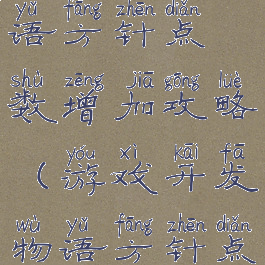 yǔ fāng zhēn diǎn
语方针点
shù zēng jiā gōng lüè
数增加攻略
yóu xì kāi fā
（游戏开发
wù yǔ fāng zhēn diǎn
物语方针点